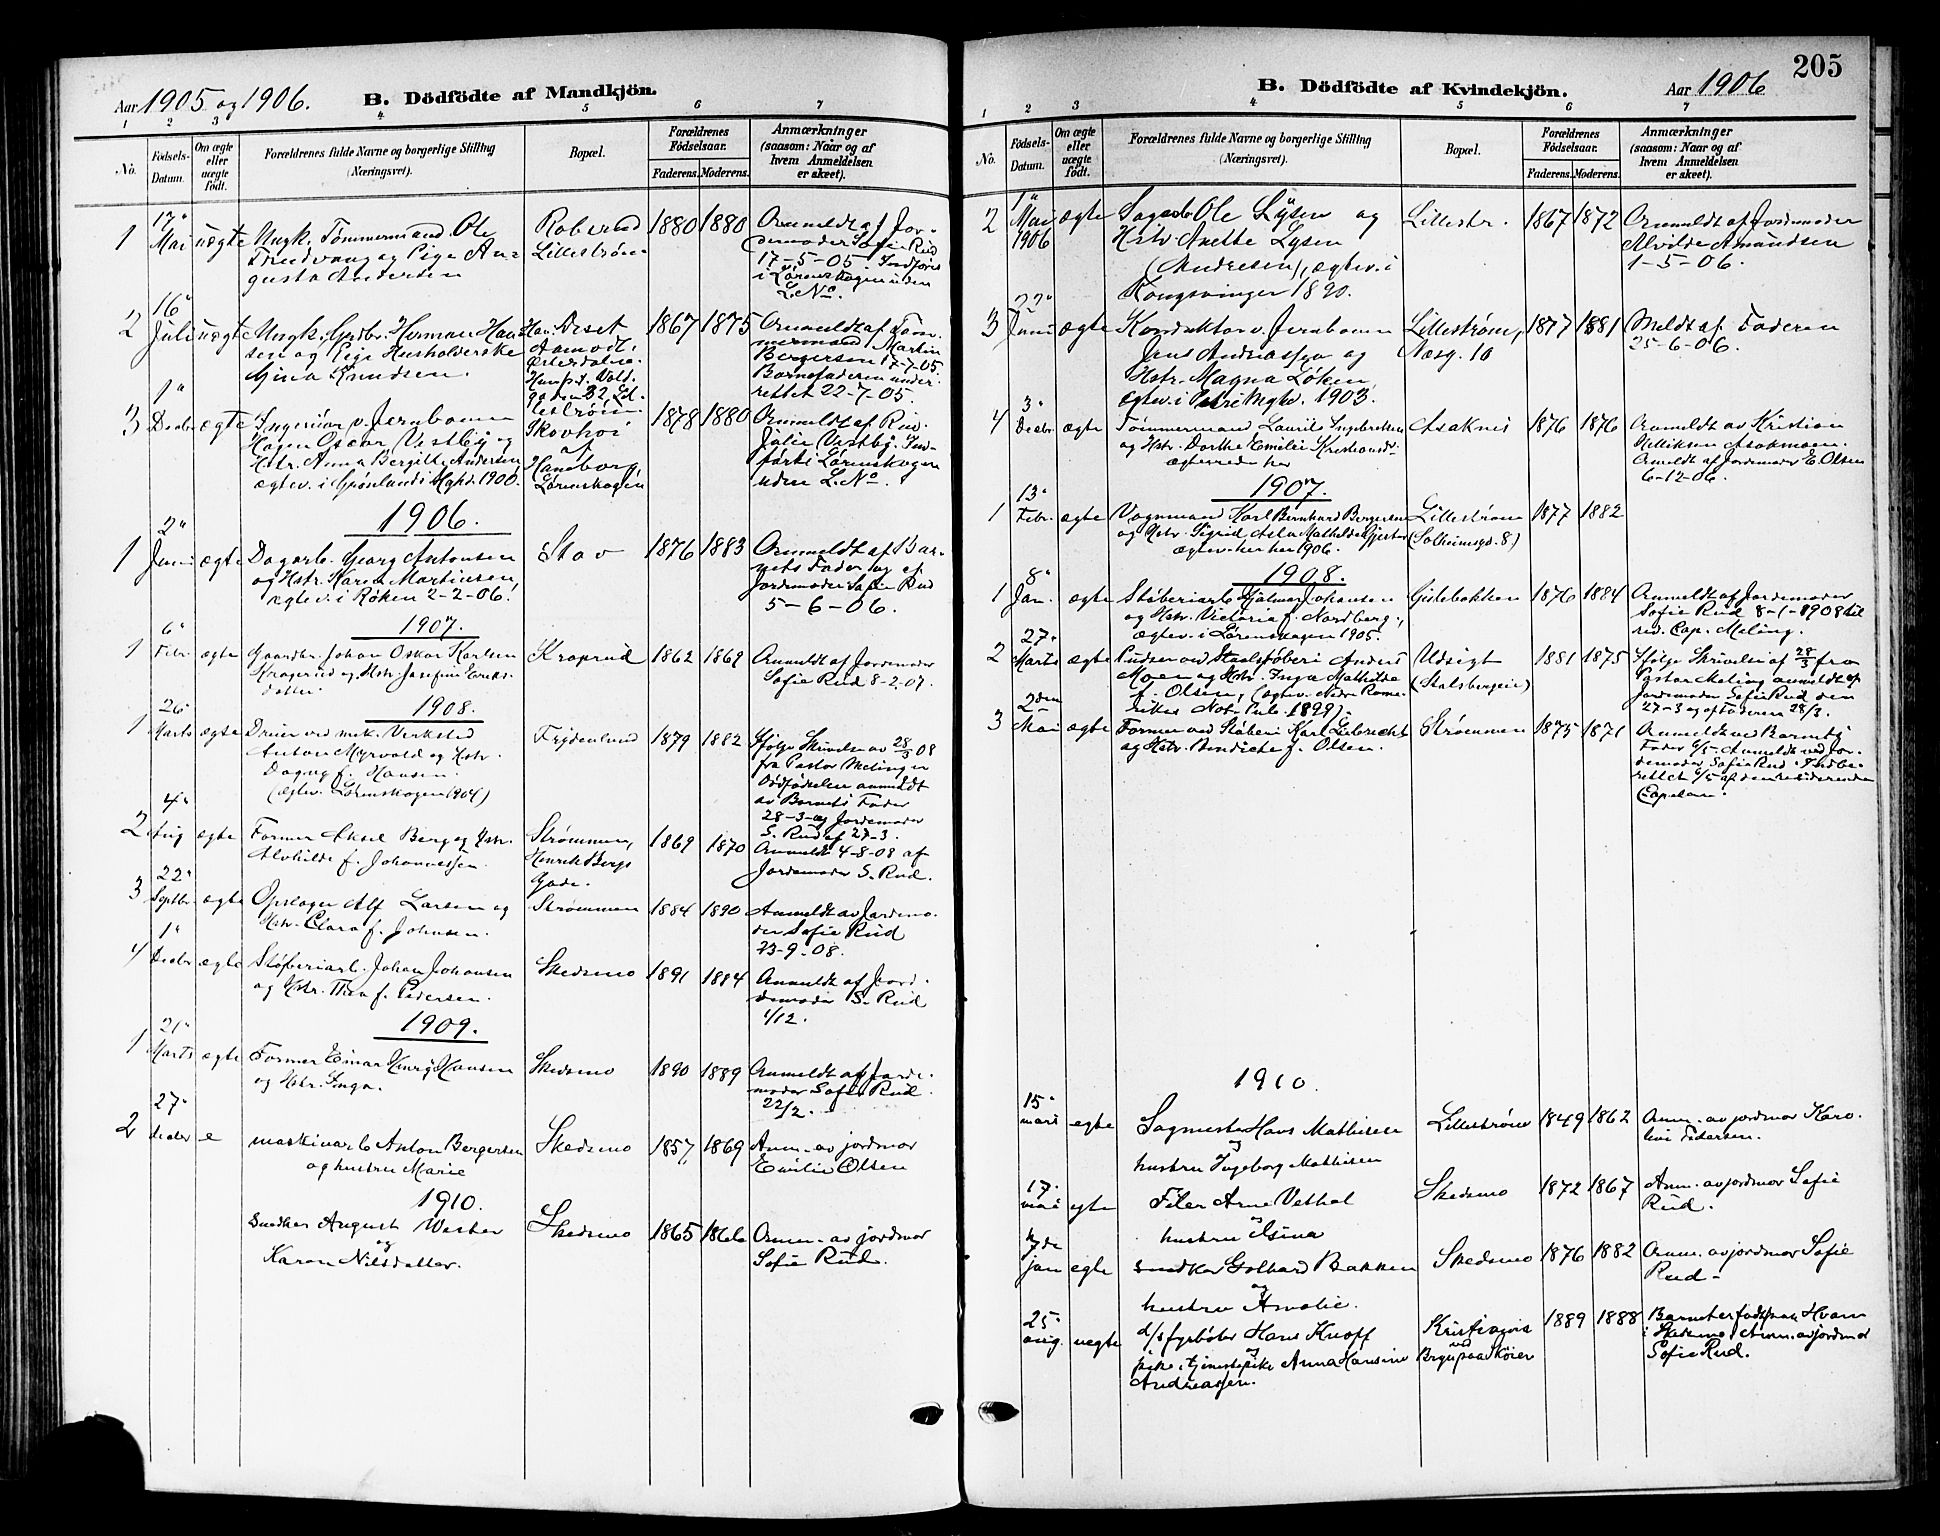 Aar 1905 og 1906. B. Dödfödte af Mandkjön.
1 2 3 4 5 6 7
No. Födsels-Datum. Om ægte eller uægte födt. Forældrenes fulde Navne og borgerlige Stilling (Næringsvei). Bopæl. Forældrenes Födselsaar. Faderens. Moderens. Anmærkninger (saasom: Naar og af hvem Anmeldelsen er skeet).
1 17 Mai uægte Ungk. Tømmermand Ole
Pige Au-
gusta Andersen
Lillestrøm
1880 1880
Anmeldt af Jor-
demoder Sofie Rud
17-5-05 Indføres
i Lørenskogen uden
L.No.
2 16 Juli uægte Ungk. Herman Han-
sen og Pige Husholderske
Gina Knudsen.
Aamodt,
Lil-
lestrøm
1867 1875
Anmeldt af Tøm-
mermand Martin
Bergersen 17-7-05
Barnefaderen under-
rettet 22-7-05.
3 1 Decbr ægte Ingeniør v. Jernbanen
Hagen Oscar Vestby og
Hstr. Anna Bergitte Andersen,
ægtev. i Grønlands Mghd. 1900.
Skovhoi
af
Haneborg,
Lørenskogen
1878 1880
Anmeldt af
Julie Vestby. Ind-
ført i Lørenskogen
uden L.No.
1906.
1 2 Juni ægte Dagarb. Georg Antonsen
og Hstr. Karen Martinsen,
ægtev. i Røken 2-2-06.
Stav
1876 1883
Anmeldt af Bar-
nets Fader og af
Jordemoder Sofie Rud
5-6-06.
1907.
1 6 Febr. ægte Gaardbr. Johan Oskar Karlsen
Kragerud og Hstr. Josefine Eriks-
datter.
Kraprud
1862 1869
Anmeldt af Jordemoder
Sofie Rud 8-2-07.
1908.
1 26 Marts ægte Dreier ved mek. Verksted
Anton Myrvold og Hstr.
Dagny f. Hansen.
(ægtev. Lørenskogen 1904)
Frydenlund
1879 1882
Ifølge Skrivelse av 28/3 08
fra Pastor Meling er
Dødfødselen anmeldt
av Barnets Fader
28-3- og Jordemoder
S. Rud af 27-3.
2 4 Aug ægte Former Aksel Berg og Hstr.
Alvhilde f. Johannessen.
Strømmen,
Henrik Bergs
Gade.
1869 1870
Anmeldt 4-8-08 af
Jordemoder S. Rud.
3 22 Septbr. ægte Opslager Alf Larsen og
Hstr. Clara f. Johnsen.
Strømmen
1884 1890
Anmeldt av Jordemo-
der Sofie Rud
23-9-08.
4 1 Decbr ægte Støberiarb. Johan Johansen
og Hstr. Thea f. Pedersen.
Skedsmo
1891 1884
Anmeldt af Jord-
demoder S. Rud
1/12.
1909.
1 21 Marts ægte Former Einar Henry Hansen
og Hstr. Inga.
Skedsmo
1890 1889
Anmeldt af Jorde-
moder Sofie Rud
22/2.
2 27 decbr e maskinarb Anton Bergersen
og hustru Marie
Skedsmo
1857 1869
Anm. av jordmor
Emilie Olsen
1910.
Snedker August Wester
og
Karen Nilsdatter.
Skedsmo
1865 1866
Anm. av jordmor
Sofie Rud.
205
B. Dödfödte af Kvindekjön. Aar 1906
1 2 3 4 5 6 7
No. Födsels-Datum. Om ægte eller uægte födt. Forældrenes fulde Navne og borgerlige Stilling (Næringsvei). Bopæl. Forældrenes Födselsaar. Faderens. Moderens. Anmærkninger (saasom: Naar og af hvem Anmeldelsen er skeet).
2 1 Mai 1906 ægte Sagarb. Ole Lysen og
Hstr. Anette Lysen
(Andresen), ægtev. i
Kongsvinger 1890.
Lillestr.
1867 1872
Anmeldt af Jordemoder
Alvilde Amundsen
1-5-06.
3 22 Juni ægte Konduktør v. Jernbanen
Jens Andreassen og
Hstr. Magna Løken,
ægtev. i Petri Mghd. 1903.
Lillestrøm,
Næsg. 10
1877 1881
Meldt af Faderen
25-6-06.
4 3 Decbr ægte Tømmermand Laurits Ingebretsen
og Hstr. Dorthe Emilie Kristiansd.
ægteviede her
Asaknes
1876 1876
Anmeldt av Kristian
Asakmoen.
Anmeldt af Jordemoder E. Olsen
6-12-06.
1907.
1 13 Febr. ægte Vognmand Karl Bernhard Bergersen
og Hstr. Sigrid Asla Mathilde
ægtev. her 1906.
Lillestrøm
(Solheimsgd. 8)
1877 1882
1908.
1 8 Jan. ægte Støberiarb. Hjalmar Johansen
og Hstr. Victoria f. Nordberg,
ægtev. i Lørenskogen 1905.
Gislebakken
1876 1884
Anmeldt af Jordemoder
Sofie Rud 8-1-1908 til
red. Cap. Meling.
2 27 Marts ægte Pudser ved Staalstøberi Anders
Moen og Hstr. Inga Mathilde
f. Olsen, (ægtev. Nedre Rome-
rikes Not. Pub. 1899).
Udsigt
(Stalsbergeie)
1881 1875
Ifølge Skrivelse af 28/3 fra
Pastor Meling anmeldt af
Jordemoder Sofie Rud den
27-3 og af Faderen 28/3.
3 2den Mai ægte Former ved Støberi Karl Liebrecht
og Hstr. Bendicte f. Olsen.
Strømmen
1875 1871
Anmeldt ved Barnets
Fader 6/5. Anmeldt ved Jor-
demoder Sofie Rud. Indbe-
rettet 6/5 af den residerende
Capelan.
1910.
15 mars egte Sagmester Hans Mathisen
og
hustru Ingeborg Mathisen
Lillestrøm
1849 1862
Anm. av jordmor Karo-
line Pedersen.
17 mai egte Filer Arne Vethal
og
hustru Gina
Skedsmo
1872 1867
Anm. av jordmor Sofie
Rud.
7de jan egte snedker Gothard Bakken
og
hustru Amalie.
Skedsmo
1876 1882
Anm. av jordmor Sofie
Rud-
25 aug. uegte d/s fyrbøter Hans Knoff
og
pike, tjenestepike Anna Hansine
Andreassen.
Kristiania
ved
Brynpaaskøien
1889 1888
Barnet er født paa Hvam
i Skedsmo. Anm. av jordmor
Sofie Rud.